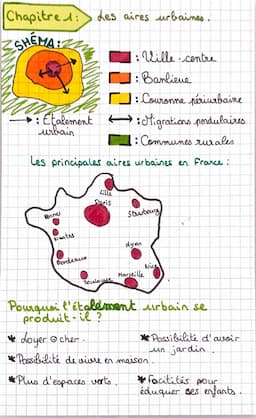 Chapitre 1 : Les aires urbaines.
SHÉMA :
: Ville-centre
: Banlieue
: Couronne périurbaine
: Étalement urbain
: Migrations pendulaires
: Communes rurales
Les principales aires urbaines en France :
Lille
Paris
Strasbourg
Rennes
Nantes
Lyon
Bordeaux
Nice
Toulouse
Marseille
Pourquoi l'étalement urbain se
produit-il ?
* Loyer @ cher.
* Possibilité d'avoir
un jardin.
* Possibilité de vivre en maison.
* Plus d'espaces verts.
* Facilités pour
éduquer ses enfants.